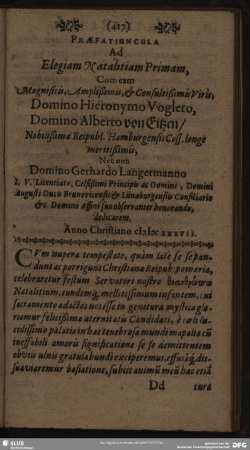 (417)
PRÆFATIUNCULA
Ad
Elegiam Natalitiam Primam,
Cum eam
Magnificis, Amplissimis, & Consultissimis Viris,
Domino Hieronymo Voglero,
Domino Alberto von Eitzen/
Nobilissimæ Reipubl. Hamburgensis Coss. longè
meritissimis,
Nec non
Domino Gerhardo Langermanno
I. V. Licentiato, Celsissimi Principis ac Domini, Domini
Augusti Ducis Brunovicensis & Lunæburgensis Consiliario
&c. Domino affini suo observanter honorando,
dedicarem.
Anno Christiano cIɔ Iɔc XXXVII.
CUm nupera tempestate, quàm latè se se pan-
dunt ac porrigunt Christianæ Reipub. pomeria,
celebraretur festum Servatoris nostro
Natalitium, eundemq; mellitissimum infantem,
sacramento adactos necesse in genitura mystica glo-
riamur felicissimæ æternitatis Candidati, è
celsissimo palatio in hæc tenebrosa mundi mapalia cum
ineffabili amoris significatione se se demittentem
obviis ulnis gratulabundi exciperemus,
suaviaremur basiatione, subiit animum meū hac etiā
Dd cura